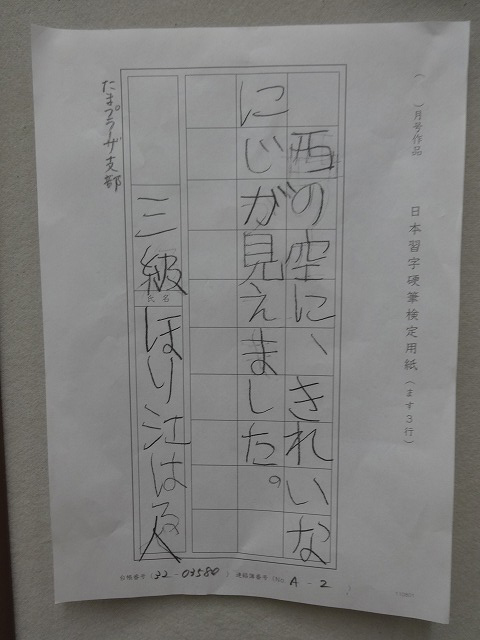 ( )月号作品
日本習字硬筆検定用紙(ます3行)
西の空に、きれいな
にじが見えました。
三級
氏名
ほり江はる人
たまプラーザ支部
(32-03580)
(No. A-2